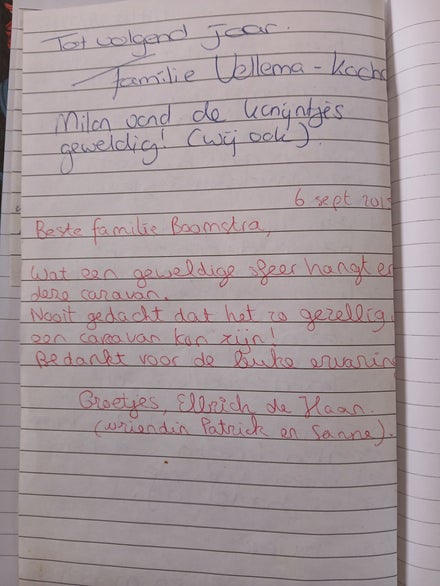 Tot volgend jaar.
familie Vellema - Koch
Milan vond de konijntjes
geweldig! (wij ook).
6 sept 201
Beste familie Boomstra,
Wat een geweldige sfeer hangt er
deze caravan.
Nooit gedacht dat het zo gezellig
een caravan kan zijn!
Bedankt voor de leuke ervaring
Groetjes, de Haan.
(vriendin Patrick en Sanne).